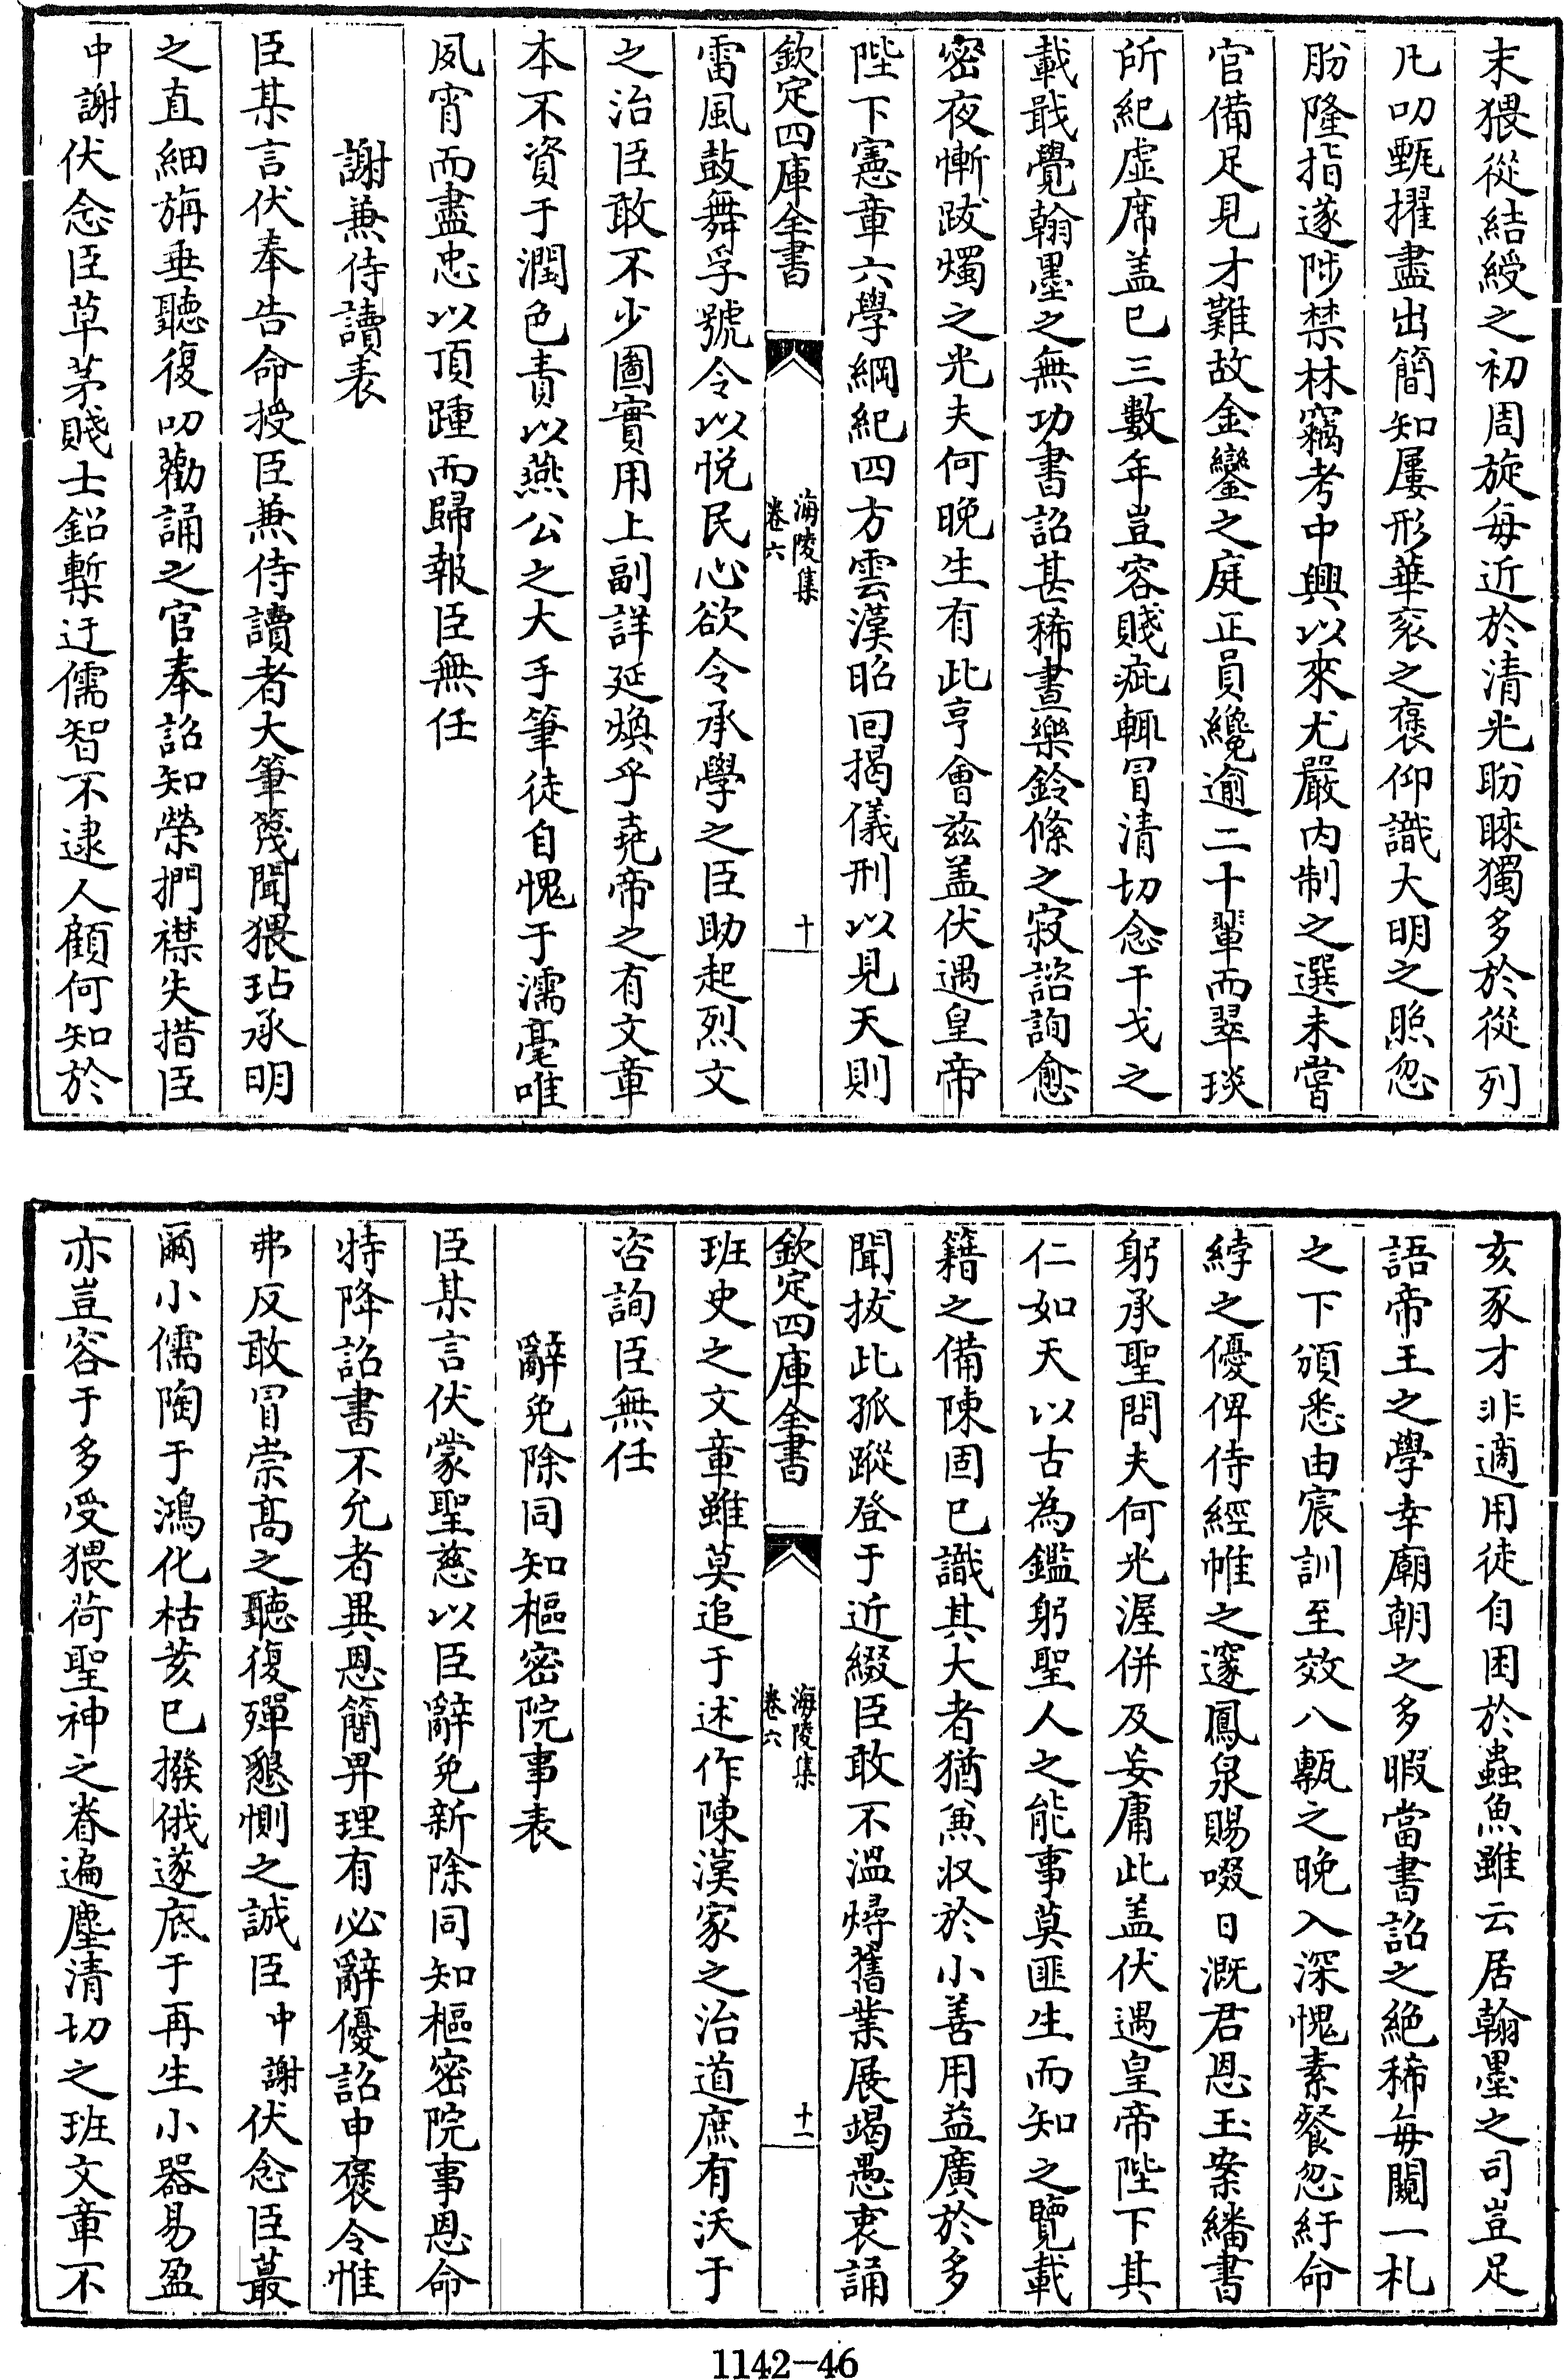 末猥從結綬之初周旋每近於清光盼睞獨多於從列
凡叨甄擢盡出簡知屢形華衮之褒仰識大明之照忽
肦隆指遂陟禁林竊考中興以來尤嚴内制之選未嘗
官備足見才難故金鑾之庭正員纔逾二十輩而翠琰
所紀虚席盖已三數年豈容賤疵輒冒清切念干戈之
載戢覺翰墨之無功書詔甚稀晝樂鈴絛之寂諮詢愈
密夜慚跋燭之光夫何晚生有此亨會兹盖伏遇皇帝
陛下憲章六學綱紀四方雲漢昭回揭儀刑以見天則
欽定四庫全書
海陵集
卷六
十
雷風鼓舞孚號令以悦民心欲令承學之臣助起烈文
之治臣敢不少圖實用上副詳延煥乎堯帝之有文章
本不資于潤色責以燕公之大手筆徒自愧于濡毫唯
夙宵而盡忠以頂踵而歸報臣無任
謝兼侍讀表
臣某言伏奉告命授臣兼侍讀者大筆篾聞猥玷承明
之直細旃垂聽復叨勸誦之官奉詔知榮捫襟失措臣
中謝伏念臣草茅賤士鉛槧迂儒智不逮人顧何知於
亥豕才非適用徒自困於蟲魚雖云居翰墨之司豈足
語帝王之學幸廟朝之多暇當書詔之絶稀每閲一札
之下頒悉由宸訓至效八甎之晚入深愧素餐忽紆命
綍之優俾侍經帷之邃鳳泉賜啜日溉君恩玉案繙書
躬承聖問夫何光渥併及妄庸此盖伏遇皇帝陛下其
仁如天以古為鑑躬聖人之能事莫匪生而知之覽載
籍之備陳固已識其大者猶兼収於小善用益廣於多
聞拔此孤蹤登于近綴臣敢不溫燖舊業展竭愚衷誦
欽定四庫全書
海陵集
卷六
十一
班史之文章雖莫追于述作陳漢家之治道庶有沃于
咨詢臣無任
辭免除同知樞密院事表
臣某言伏蒙聖慈以臣辭免新除同知樞密院事恩命
特降詔書不允者異恩簡畀理有必辭優詔申褒令惟
弗反敢冒崇髙之聽復殫懇惻之誠臣中謝伏念臣蕞
爾小儒陶于鴻化枯荄已撥俄遂底于再生小器易盈
亦豈容于多受猥荷聖神之眷遍塵清切之班文章不
1142-46